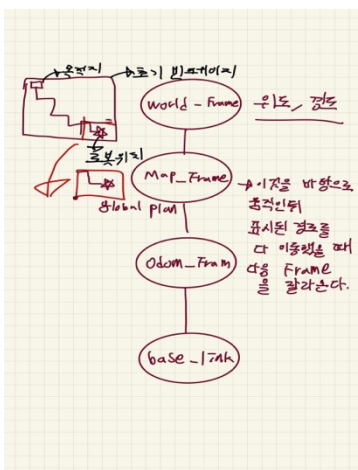 목적지
초기 빈페이지
World - Frame
위도, 경도
로봇위치
Map_Frame
global plan
→ 이것을 바탕으로
움직인뒤
표시된 경로를
다 이동했을 때
다음 Frame
을 잘라온다.
Odom_Fram
base_link